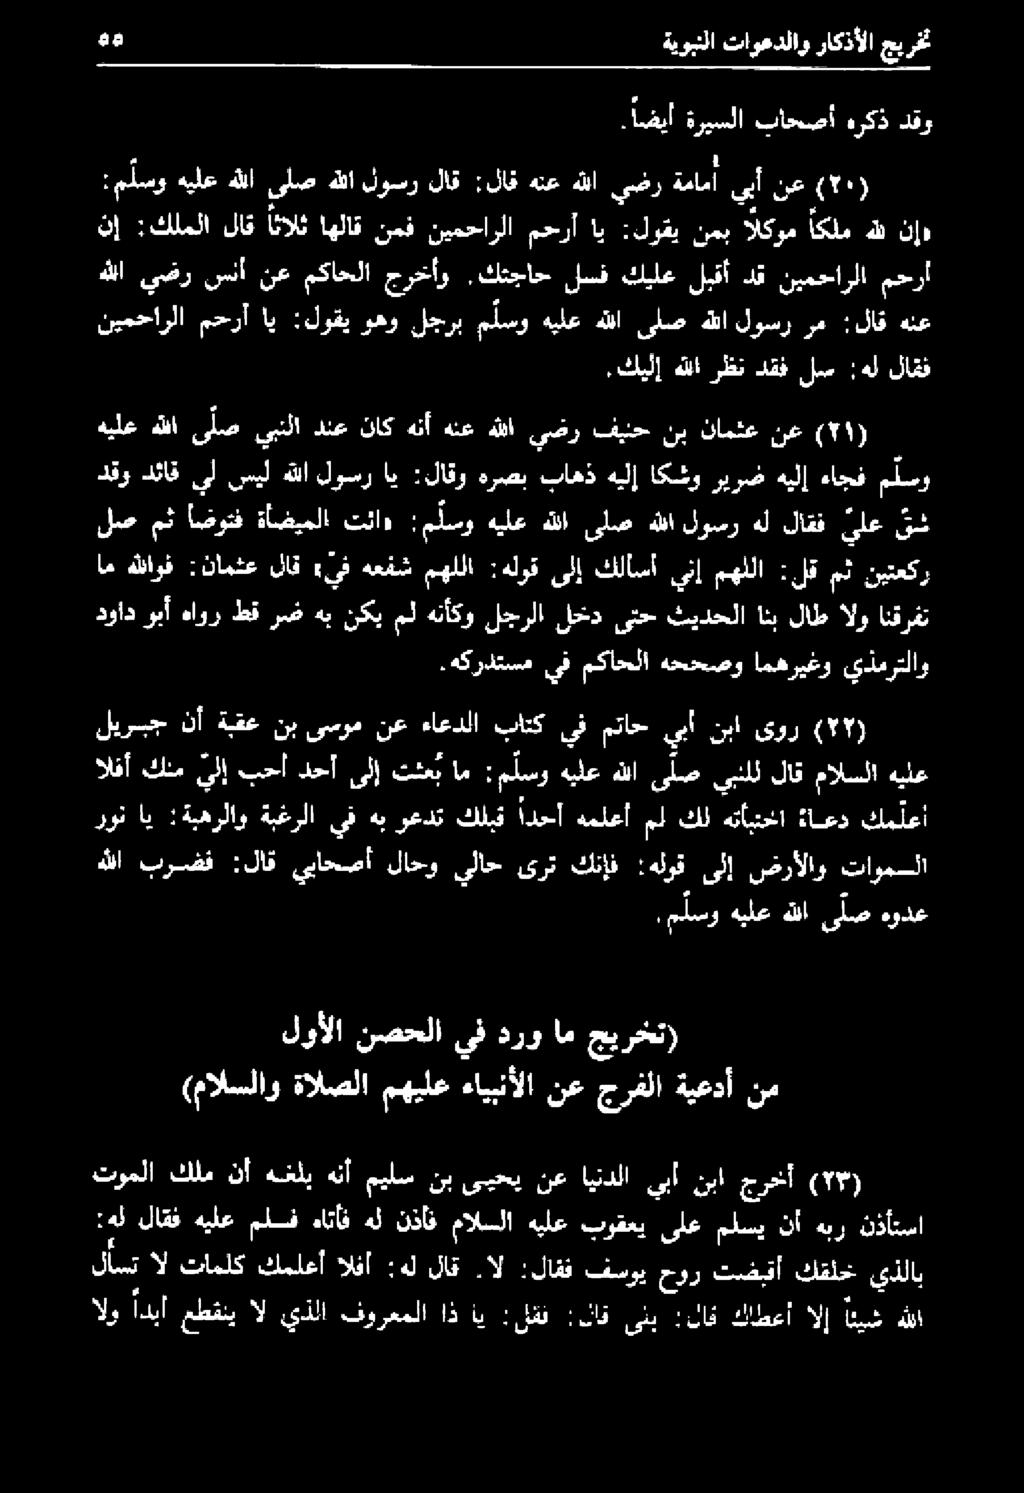 تخريج الأذكار والدعوات النبوية ٥٥
وقد ذكره أصحاب السيرة أيضاً.
(٢٠) عن أبي أمامة رضي الله عنه قال: قال رسول الله صلى الله عليه وسلّم:
«إن لله ملكاً موكلاً بمن يقول: يا أرحم الراحمين فمن قالها ثلاثاً قال الملك: إن
أرحم الراحمين قد أقبل عليك فسل حاجتك. وأخرج الحاكم عن أنس رضي الله
عنه قال: مر رسول الله صلى الله عليه وسلّم برجل وهو يقول: يا أرحم الراحمين
فقال له: سل فقد نظر الله إليك.
(٢١) عن عثمان بن حنيف رضي الله عنه أنه كان عند النبي صلّى الله عليه
وسلّم فجاء إليه ضرير وشكا إليه ذهاب بصره وقال: يا رسول الله ليس لي قائد وقد
شقّ عليّ فقال له رسول الله صلى الله عليه وسلّم: «ائت الميضأة فتوضأ ثم صل
ركعتين ثم قل: اللهم إني أسألك إلى قوله: اللهم شفعه فيّ» قال عثمان: فوالله ما
تفرقنا ولا طال بنا الحديث حتى دخل الرجل وكأنه لم يكن به ضر قط رواه أبو داود
والترمذي وغيرهما وصححه الحاكم في مستدركه.
(٢٢) روى ابن أبي حاتم في كتاب الدعاء عن موسى بن عقبة أن جبـريل
عليه السلام قال للنبي صلّى الله عليه وسلّم: ما بُعثت إلى أحد أحب إليّ منك أفلا
أعلّمك دعـاءً اختبأته لك لم أعلمه أحداً قبلك تدعو به في الرغبة والرهبة: يا نور
الـسموات والأرض إلى قوله: فإنك ترى حالي وحال أصحابي قال: فضـرب الله
عدوه صلّى الله عليه وسلّم.
(تخريج ما ورد في الحصن الأول
من أدعية الفرج عن الأنبياء عليهم الصلاة والسلام)
(٢٣) أخرج ابن أبي الدنيا عن يحيـى بن سليم أنه بلغـه أن ملك الموت
استأذن ربه أن يسلم على يعقوب عليه السلام فأذن له فأتاه فسلم عليه فقال له:
بالذي خلقك أقبضت روح يوسف فقال: لا. قال له: أفلا أعلمك كلمات لا تسأل
الله شيئاً إلا أعطاك قال: بلى قال: فقل: يا ذا المعروف الذي لا ينقطع أبداً ولا